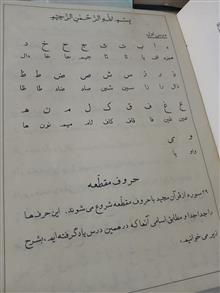 بِسْمِ اللّٰهِ الرَّحْمٰنِ الرَّحِيْمِ
درس اول
ء ا ب ت ث ج ح خ د
همزه الف با تا ثا جيم حا خا دال
ذ ر ز س ش ص ض ط ظ
ذال را زا سين شين صاد ضاد طا ظا
ع غ ف ق ک ل م ن ه
عين غين فا قاف کاف لام ميم نون ها
و ی
واو يا
حروف مقطّعه
۲۹ سوره از قرآن مجيد با حروف مقطّعه شروع می شوند. اين حرف ها
را جدا جدا و مطابق اسامی آنها که در همين درس ياد گرفته ايد، بشرح
زير می خوانيد: